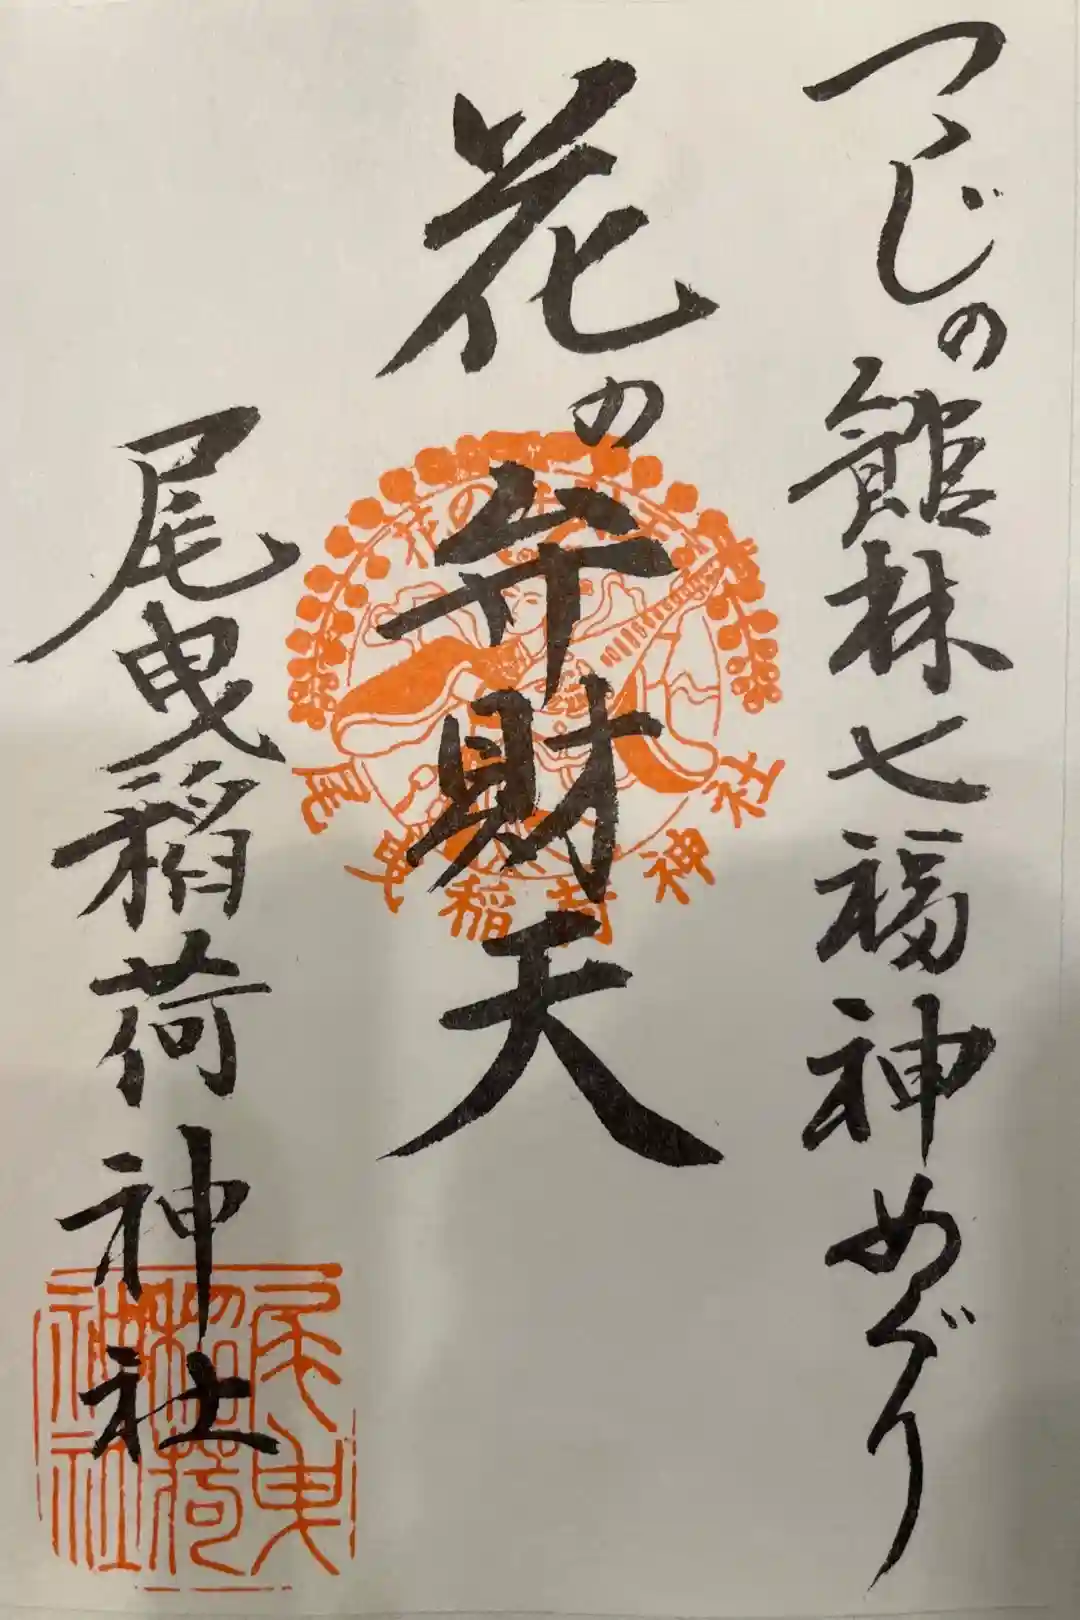 つゝじの館林七福神めぐり
花の弁財天
尾曳稲荷神社
尾曳稲荷神社
尾曳
稲荷
神社